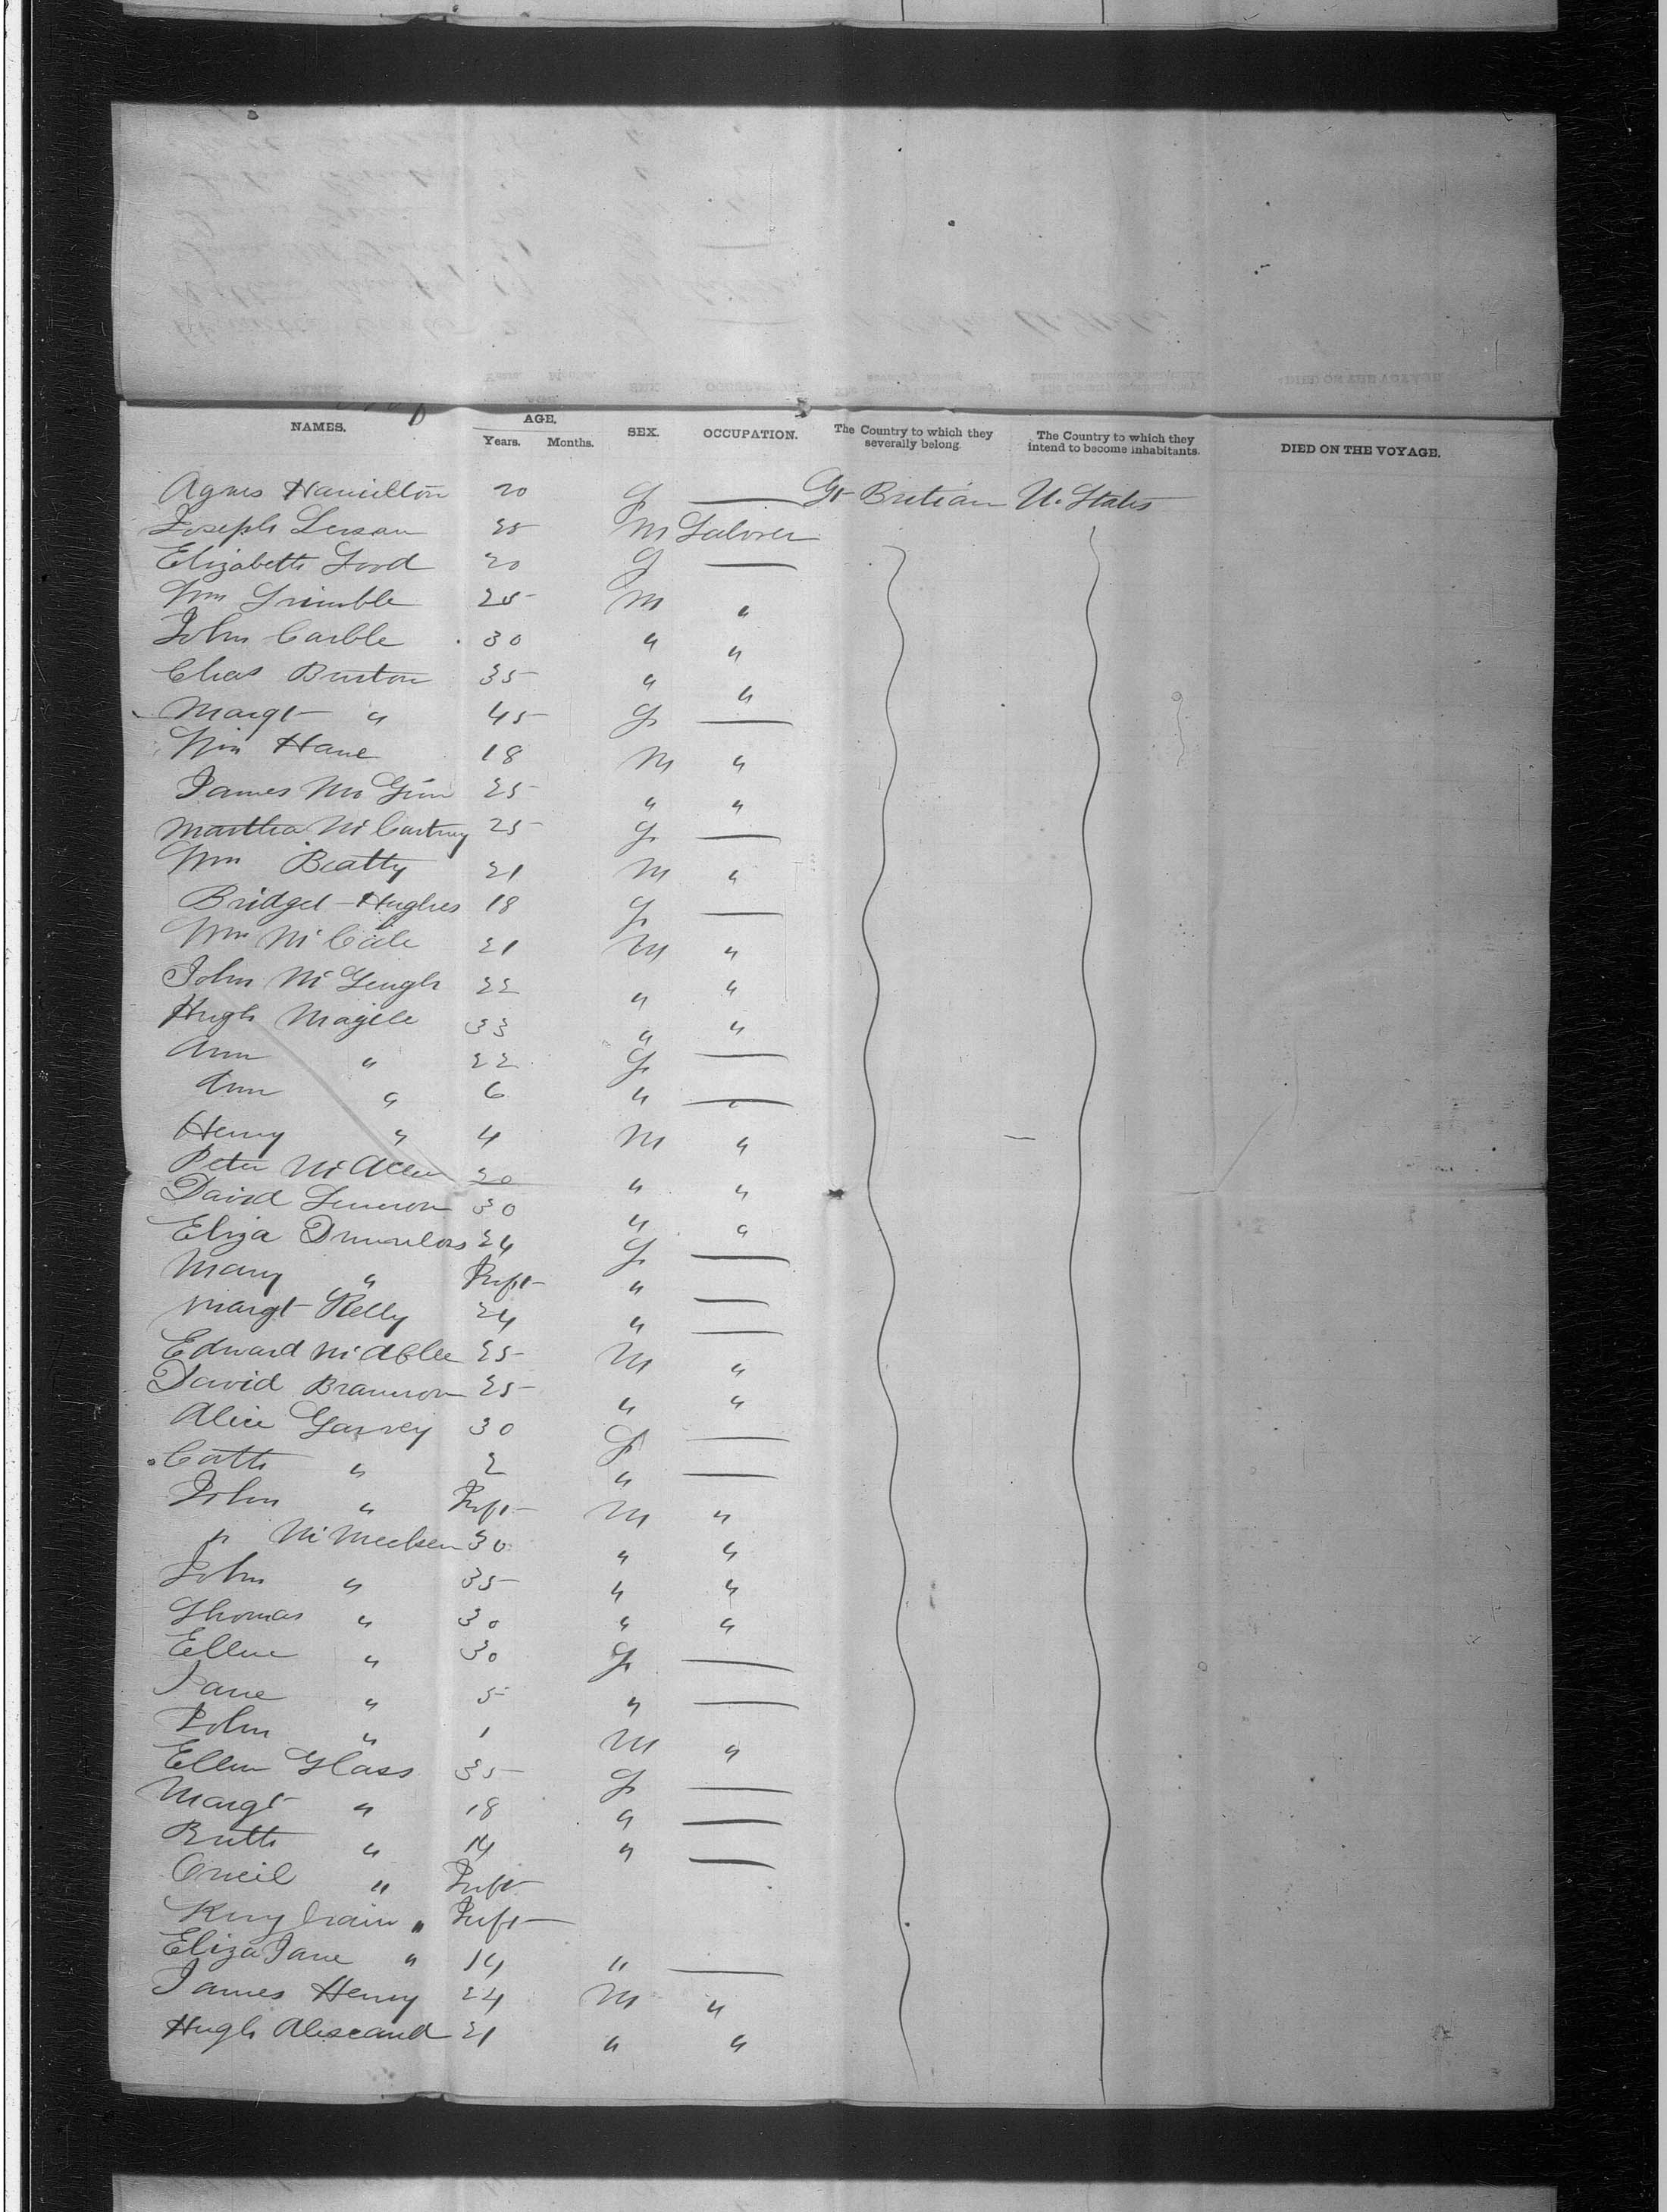 NAMES. AGE. Years. Months. SEX. OCCUPATION. The Country to which they severally belong. The Country to which they intend to become inhabitants. DIED ON THE VOYAGE.
Agnes Hamilton 20 f — Gt Britian U. States
Joseph 25 m Laborer
Elizabeth Ford 20 f —
Wm Trimble 25 m "
John Carble 30 " "
Chas Burton 35 " "
Margt " 45 f —
Wm Hane 18 m "
James Mc Ginn 25 " "
Martha McCartney 25 f —
Wm Beatty 21 m "
Bridget Hughes 18 f —
Wm McCale 21 m "
John McGeugh 22 " "
Hugh Magile 33 " "
Ann " 22 f —
Ann " 6 " —
Henry " 4 m "
Peter McAleer 20 " "
David Lennon 30 " "
Eliza 24 f —
Mary " Inft " —
Margt Kelly 24 " —
Edward McAblee 25 m "
David Brannon 25 " "
Alice Garvey 30 f —
Cath " 2 " —
John " Inft m "
" McMeeken 30 " "
John " 35 " "
Thomas " 30 " "
Ellen " 30 f —
Jane " 5 " —
John " 1 m "
Ellen Glass 35 f —
Margt " 18 " —
Ruth " 14 " —
Oneil " Inft
" Inft
Eliza Jane " 14 " —
James Henry 24 m "
Hugh 21 " "